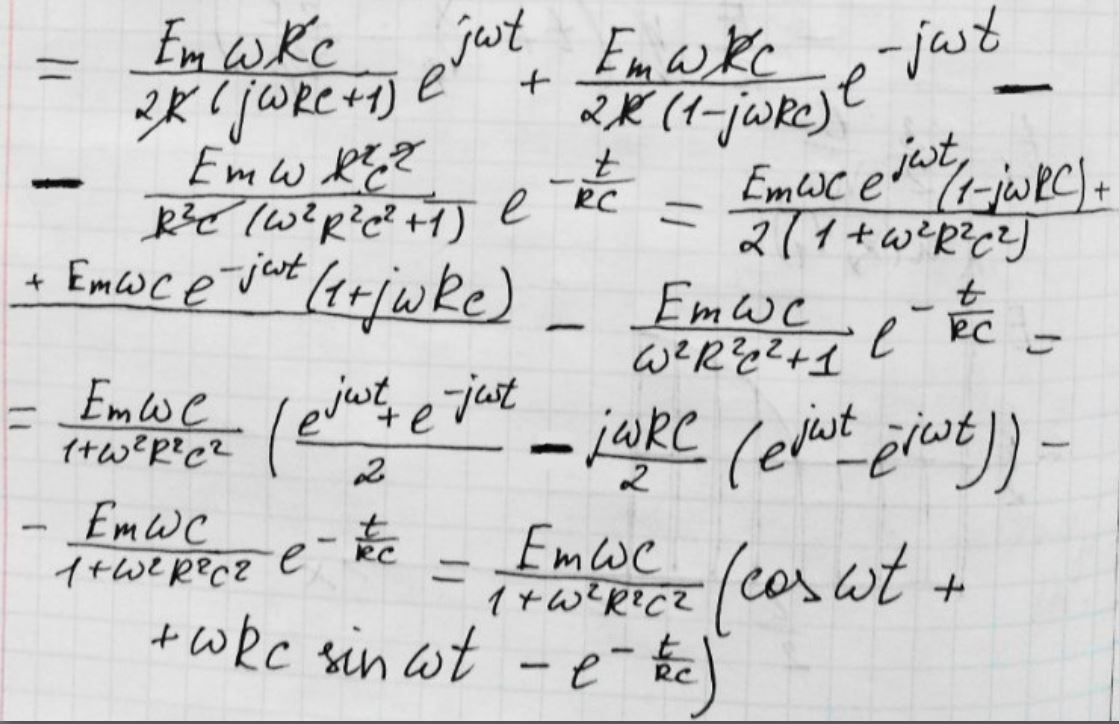 = \frac{E_m ω R C}{2R (jωRC+1)} e^{jωt} + \frac{E_m ω R C}{2R (1-jωRC)} e^{-jωt} −
− \frac{E_m ω R^2 C^2}{R^2 C (ω^2R^2C^2+1)} e^{-\frac{t}{RC}} = \frac{E_m ω C e^{jωt} (1-jωRC) +}{2(1+ω^2R^2C^2)}
\frac{+ E_m ω C e^{-jωt} (1+jωRC)}{} − \frac{E_m ω C}{ω^2R^2C^2+1} e^{-\frac{t}{RC}} =
= \frac{E_m ω C}{1+ω^2R^2C^2} (\frac{e^{jωt} + e^{-jωt}}{2} − \frac{jωRC}{2} (e^{jωt} − e^{-jωt})) −
− \frac{E_m ω C}{1+ω^2R^2C^2} e^{-\frac{t}{RC}} = \frac{E_m ω C}{1+ω^2R^2C^2} (cos ωt +
+ ωRC sin ωt − e^{-\frac{t}{RC}})